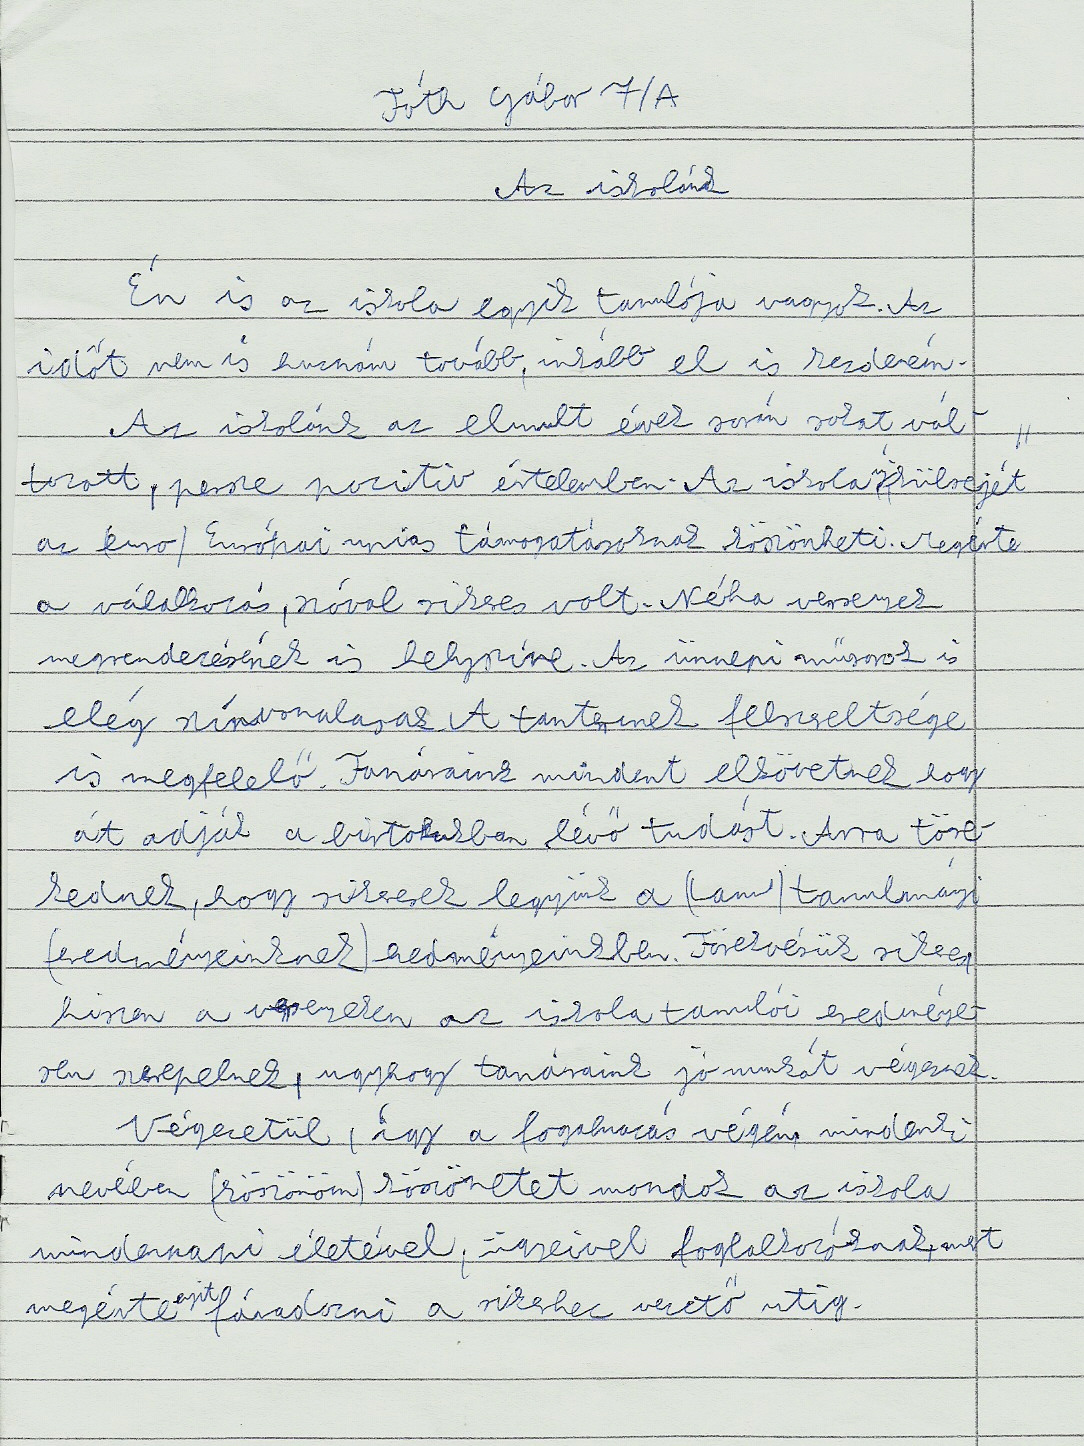 Tóth Gábor 7/A
Az iskolánk
Én is az iskola egyik tanulója vagyok. Az
időt nem is huznám tovább, inkább el is kezdeném.
Az iskolánk az elmult évek során sokat vál-
tozott, persze pozitiv értelemben. Az iskola új külsejét
az (euro) Európai unias támogatásoknak köszönheti. Megérte
a válalkozás, szóval sikeres volt. Néha versenyek
megrendezésének is helyszine. Az ünnepi műsorok is
elég szinvonalasak. A tantermek felszereltsége
is megfelelő. Tanáraink mindent elkövetnek hogy
át adják a birtokukban lévő tudást. Arra töre-
kednek, hogy sikeresek legyünk a (tanu) tanulmányi
(eredményeinknek) eredményeinkben. Törekvésük sikeres,
hiszen a versenyeken az iskola tanulói eredménye-
sen szerepelnek, ugyhogy tanáraink jó munkát végeznek.
Végezetül, így a fogalmazás végén, mindenki
nevében (köszönöm) köszönetet mondok az iskola
mindennapi életével, ügyeivel foglalkozóknak, mert
megérte ennyit fáradozni a sikerhez vezető utig.